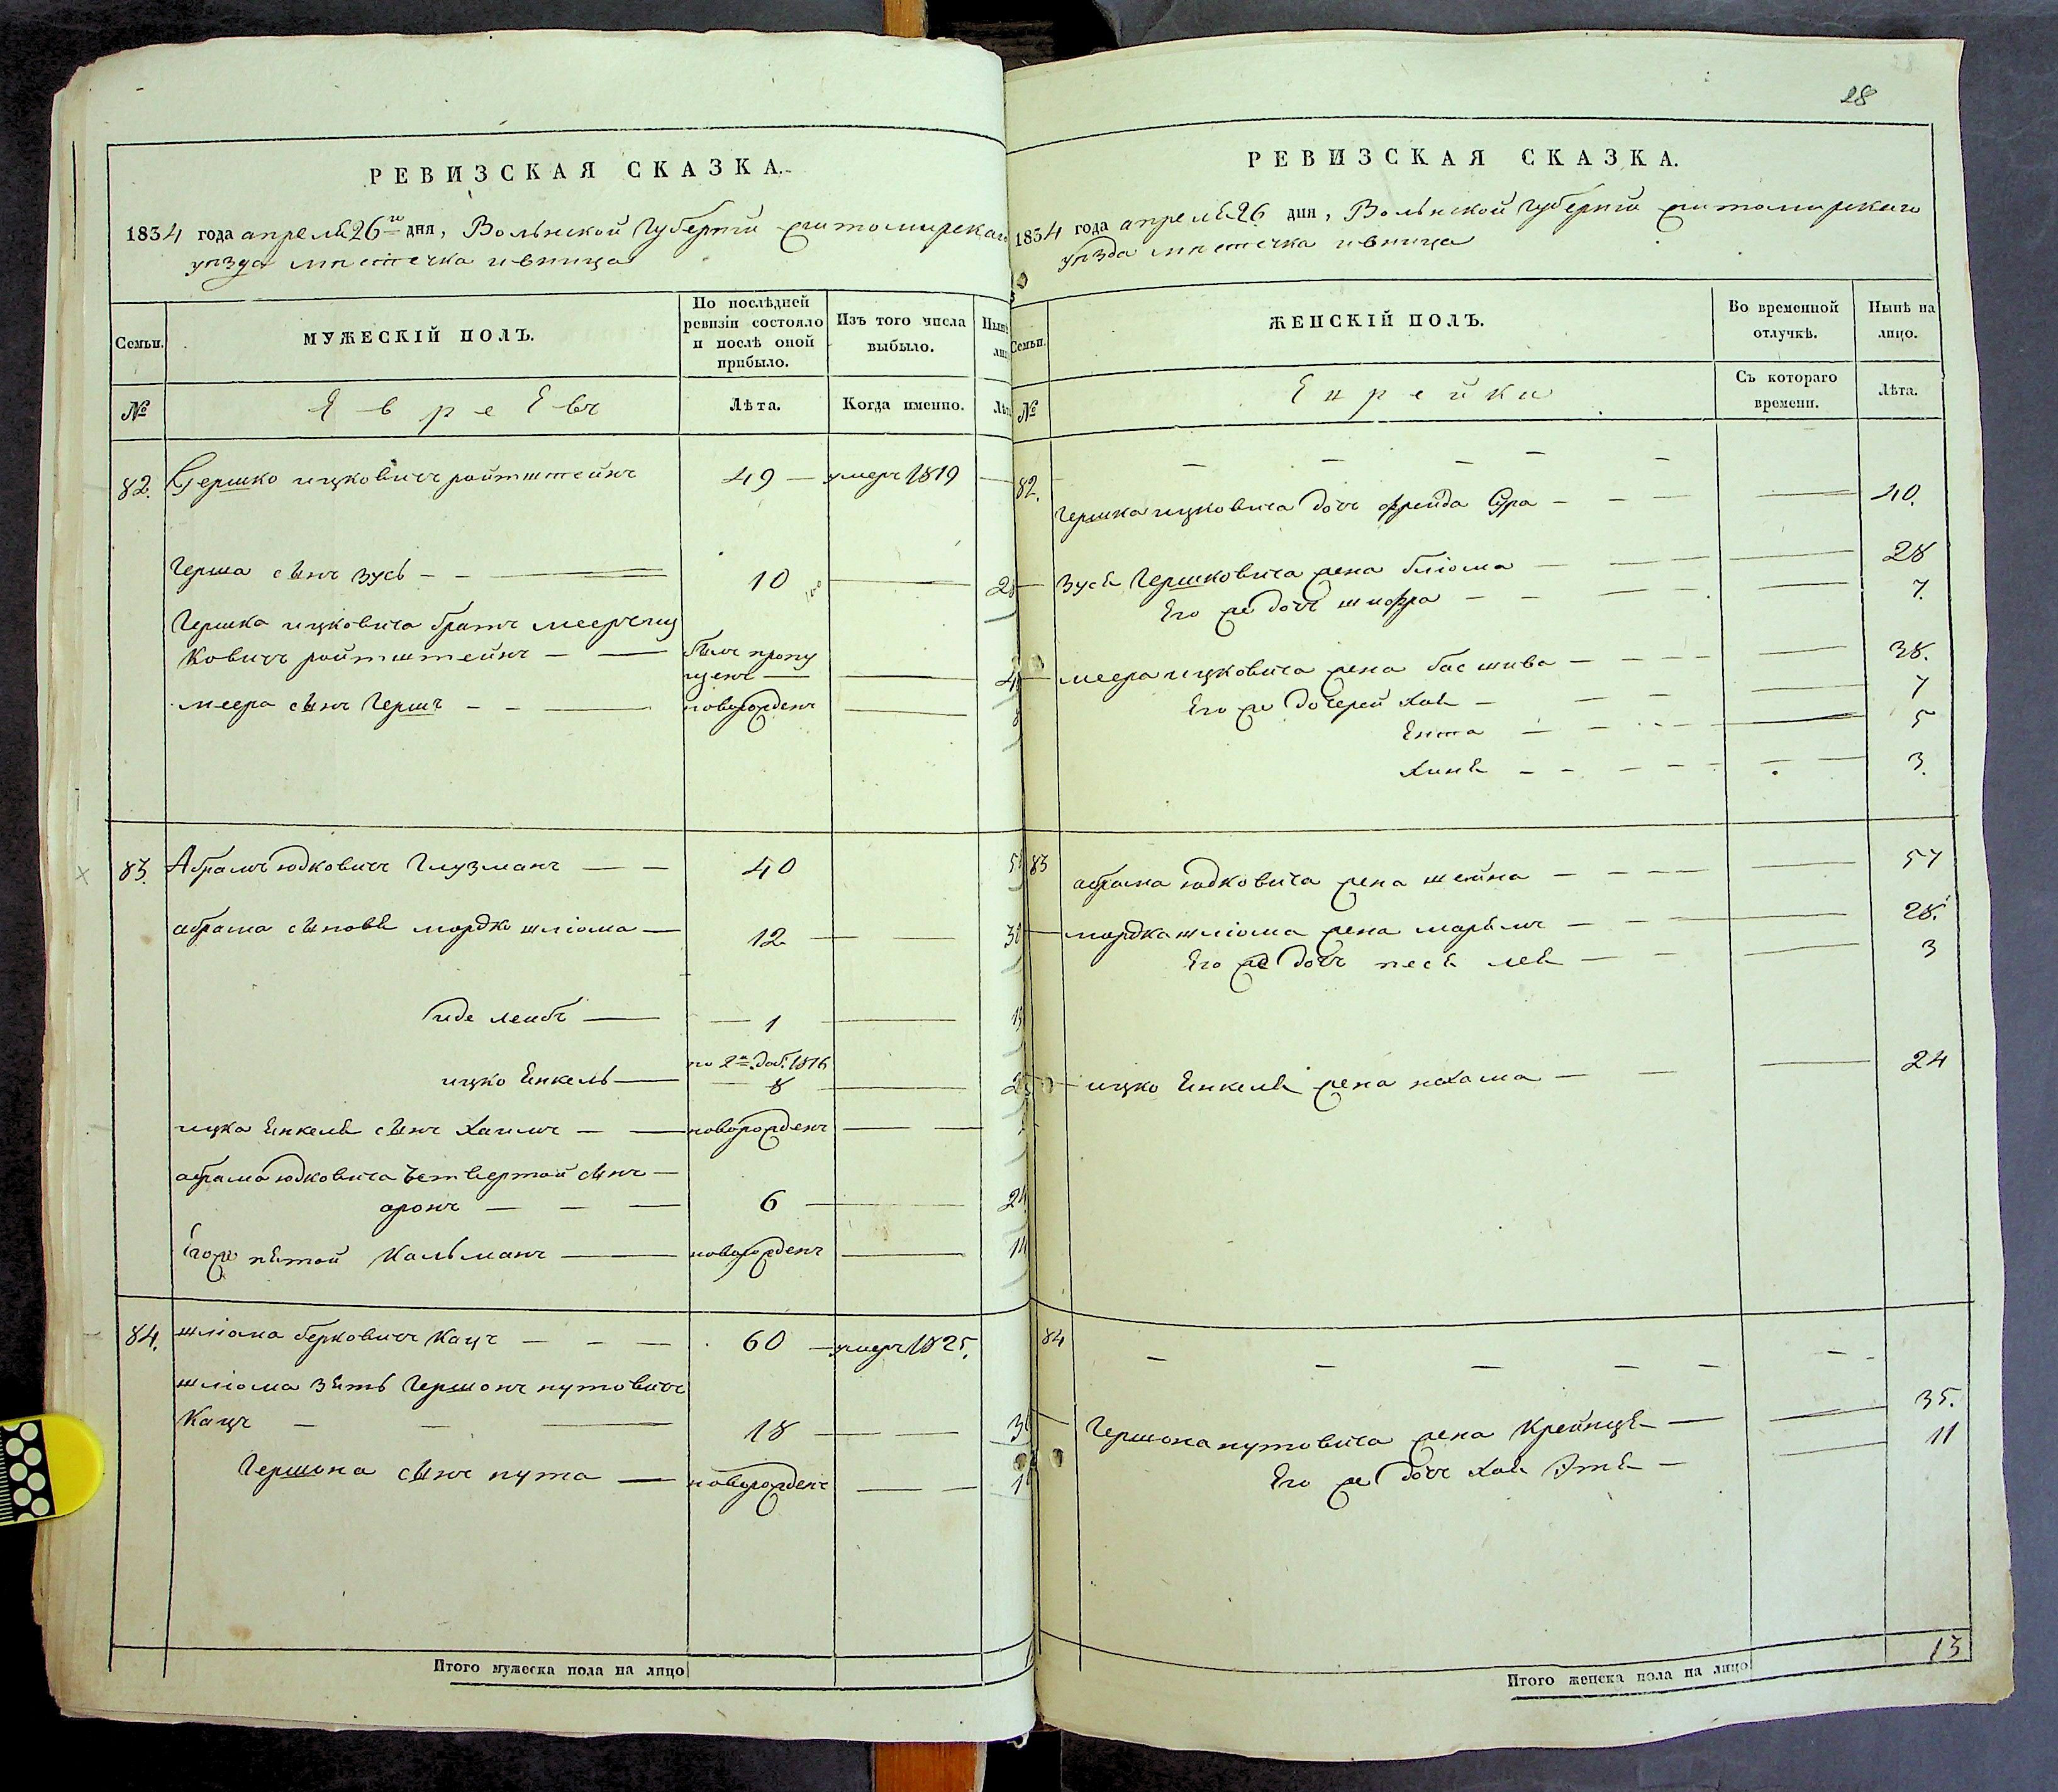 РЕВИЗСКАЯ СКАЗКА.
1834 года апреля 26го дня, Волынской Губернии житомирскаго
уѣзда мѣстечка ивница
Семьи.
МУЖЕСКІЙ ПОЛЪ.
По послѣдней
ревизіи состояло
и послѣ оной
прибыло.
Изъ того числа
выбыло.
Нынѣ
№
Евреевъ
Лѣта.
Когда именно.
82. Гершко ицковичъ ройтштейнъ — 49 — умеръ 1819
Герша сынъ зусь — 10
Гершка ицковича братъ мееръ иц
ковичъ ройтштейнъ — былъ пропу
щенъ
меера сынъ Гершъ — новорожденъ
83. Абрамъ юдковичъ Глузманъ — 40
абрама сыновья мордко шліома — 12
лейбъ — 1
по 2й доб. 1816
ицко Янкель — 8
ицка Янкеля сынъ Хаимъ — новорожденъ
абрама юдковича четвертой сынъ
аронъ — 6
Егоже пятой Кальманъ — новорожденъ
84. шліома берковичъ Кацъ — 60 — умеръ 1825.
шліома зять Гершонъ нутовичъ
Кацъ — 18
Гершона сынъ нута — новорожденъ
Итого мужеска пола на лицо
28
РЕВИЗСКАЯ СКАЗКА.
1834 года апреля 26 дня, Волынской губерніи житомирскаго
уѣзда мѣстечка ивница
Семьи.
ЖЕНСКІЙ ПОЛЪ.
Во временной
отлучкѣ.
Нынѣ на
лицо.
№
Еврейки
Съ котораго
времени.
Лѣта.
82.
Гершка ицковича дочь фрейда Сура — 40.
Зуся Гершковича жена бліома — 28
Его же дочь шифра — 7.
меера ицковича жена басшива — 38.
Его же дочерей Хая — 7
Ента — 5
Хиня — 3.
83 абрама юдковича жена шейна — 57
мордка шліома жена марьямъ — 28.
Его же дочь песя лея — 3
ицко Янкеля жена нехама — 24
84
Гершона нутовича жена Крейнця — 35.
Его же дочь Хая Этя — 11
Итого женска пола на лицо 13